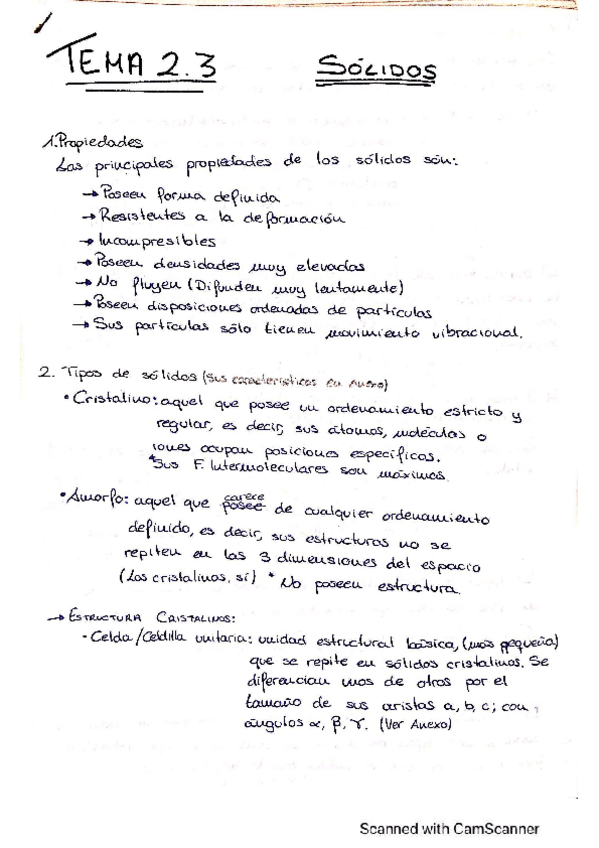 TEMA 2.3 SÓLIDOS
1.Propiedades
Las principales propiedades de los sólidos són:
→ Poseen forma definida
→ Resistentes a la deformación
→ Incompresibles
→ Poseen densidades muy elevadas
→ No fluyen (Difunden muy lentamente)
→ Poseen disposiciones ordenadas de partículas
→ Sus partículas sólo tienen movimiento vibracional.
2. Tipos de sólidos (Sus características en Anexo)
• Cristalino: aquel que posee un ordenamiento estricto y
regular, es decir, sus átomos, moléculas o
iones ocupan posiciones específicas.
*Sus F. Intermoleculares son máximas.
carece
• Amorfo: aquel que posee de cualquier ordenamiento
definido, es decir, sus estructuras no se
repiten en las 3 dimensiones del espacio
(Los cristalinos, sí) * No poseen estructura.
→ ESTRUCTURA CRISTALINOS:
- Celda/Celdilla unitaria: unidad estructural básica, (más pequeña)
que se repite en sólidos cristalinos. Se
diferencian unos de otros por el
tamaño de sus aristas a, b, c; con,
ángulos α, β, γ. (Ver Anexo)
Scanned with CamScanner